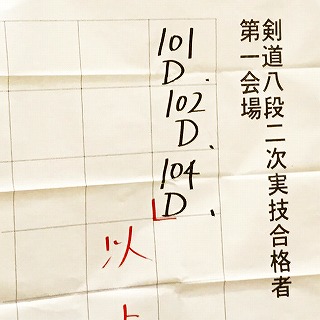 剣道八段二次実技合格者
第一会場
101
D
102
D
104
D
以